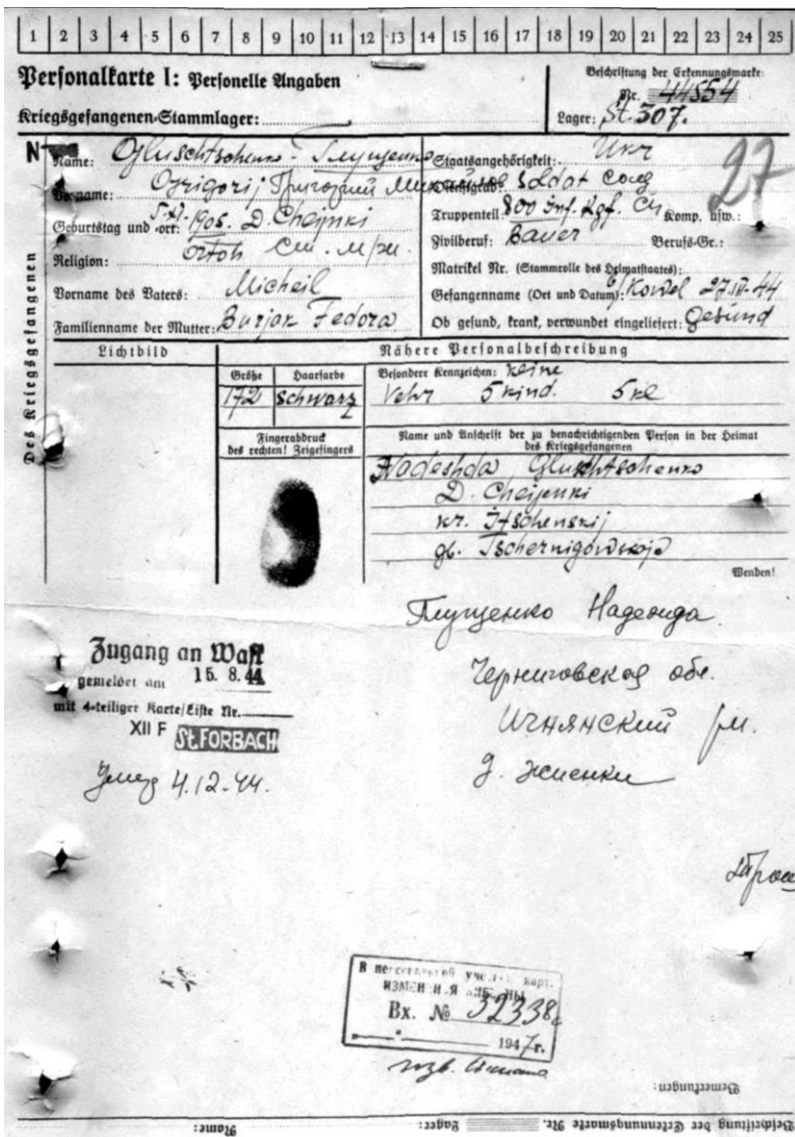 1 2 3 4 5 6 7 8 9 10 11 12 13 14 15 16 17 18 19 20 21 22 23 24 25
Personalkarte I: Personelle Angaben
Kriegsgefangenen-Stammlager:
Beschriftung der Erkennungsmarke
Nr. 44554
Lager: St. 307.
Des Kriegsgefangenen
Name: Gluschtschenko - Глущенко
Vorname: Grigorij Григорий
Geburtstag und -ort: 1905. D.
Religion: Ortoh
Vorname des Vaters: Micheil
Familienname der Mutter: Burjak Fedora
Staatsangehörigkeit: Ukr
Dienstgrad: Soldat
Truppenteil: 800 Inf. Rgf. Komp. usw.:
Zivilberuf: Bauer Berufs-Gr.:
Matrikel Nr. (Stammrolle des Heimatstaates):
Gefangenname (Ort und Datum): Kowel 27.IV.44
Ob gesund, krank, verwundet eingeliefert: Gesund
27
Lichtbild
Nähere Personalbeschreibung
Größe Haarfarbe
172 Schwarz
Besondere Kennzeichen: keine
5 kind. 5 kl
Fingerabdruck
des rechten! Zeigefingers
Name und Anschrift der zu benachrichtigenden Person in der Heimat
des Kriegsgefangenen
Nadeshda Gluschtschenko
D.
kr. Itschenskij
gb. Tschernigowskoja
Wenden!
Глущенко Надежда.
Черниговская обл.
Ичнянский
д. Жиенки
Zugang an Wast
gemeldet am 15. 8. 44
mit 4-teiliger Karte/Liste Nr.
XII F St. FORBACH
4.12.44.
В персональной учетн. карт.
ИЗМЕНЕНИЯ ВНЕСЕНЫ
Вх. № 32338
1947г.
Bemerkungen:
Beschriftung der Erkennungsmarke Nr. Lager: Name: